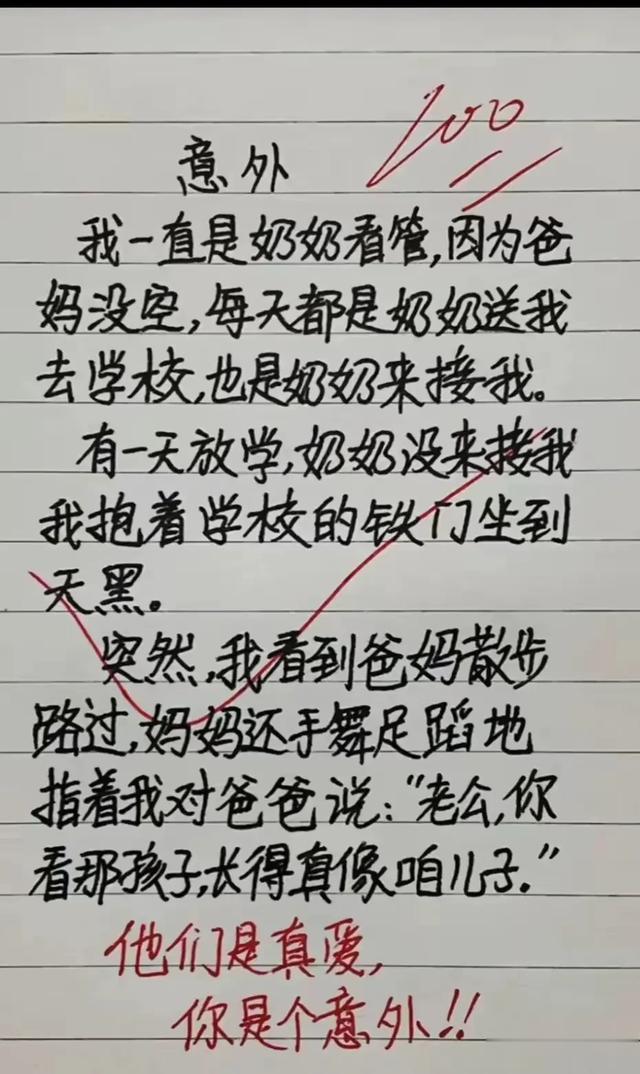 100
意外
我一直是奶奶看管,因为爸
妈没空,每天都是奶奶送我
去学校,也是奶奶来接我。
有一天放学,奶奶没来接我
我抱着学校的铁门坐到
天黑。
突然,我看到爸妈散步
路过,妈妈还手舞足蹈地
指着我对爸爸说:“老公,你
看那孩子,长得真像咱儿子.”
他们是真爱,
你是个意外!!